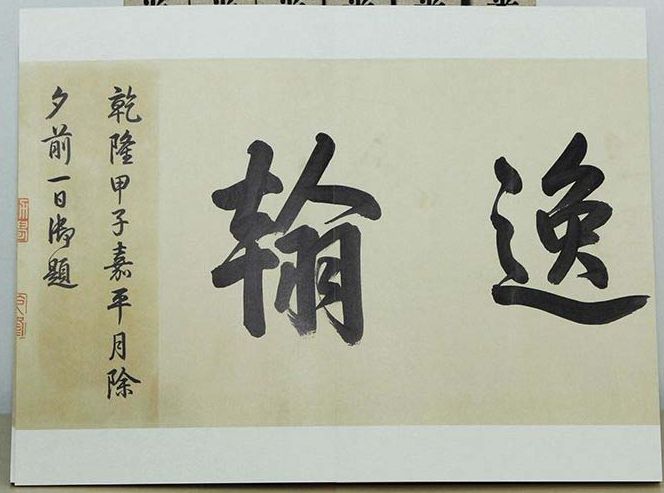 逸翰
乾隆甲子嘉平月除
夕前一日御題